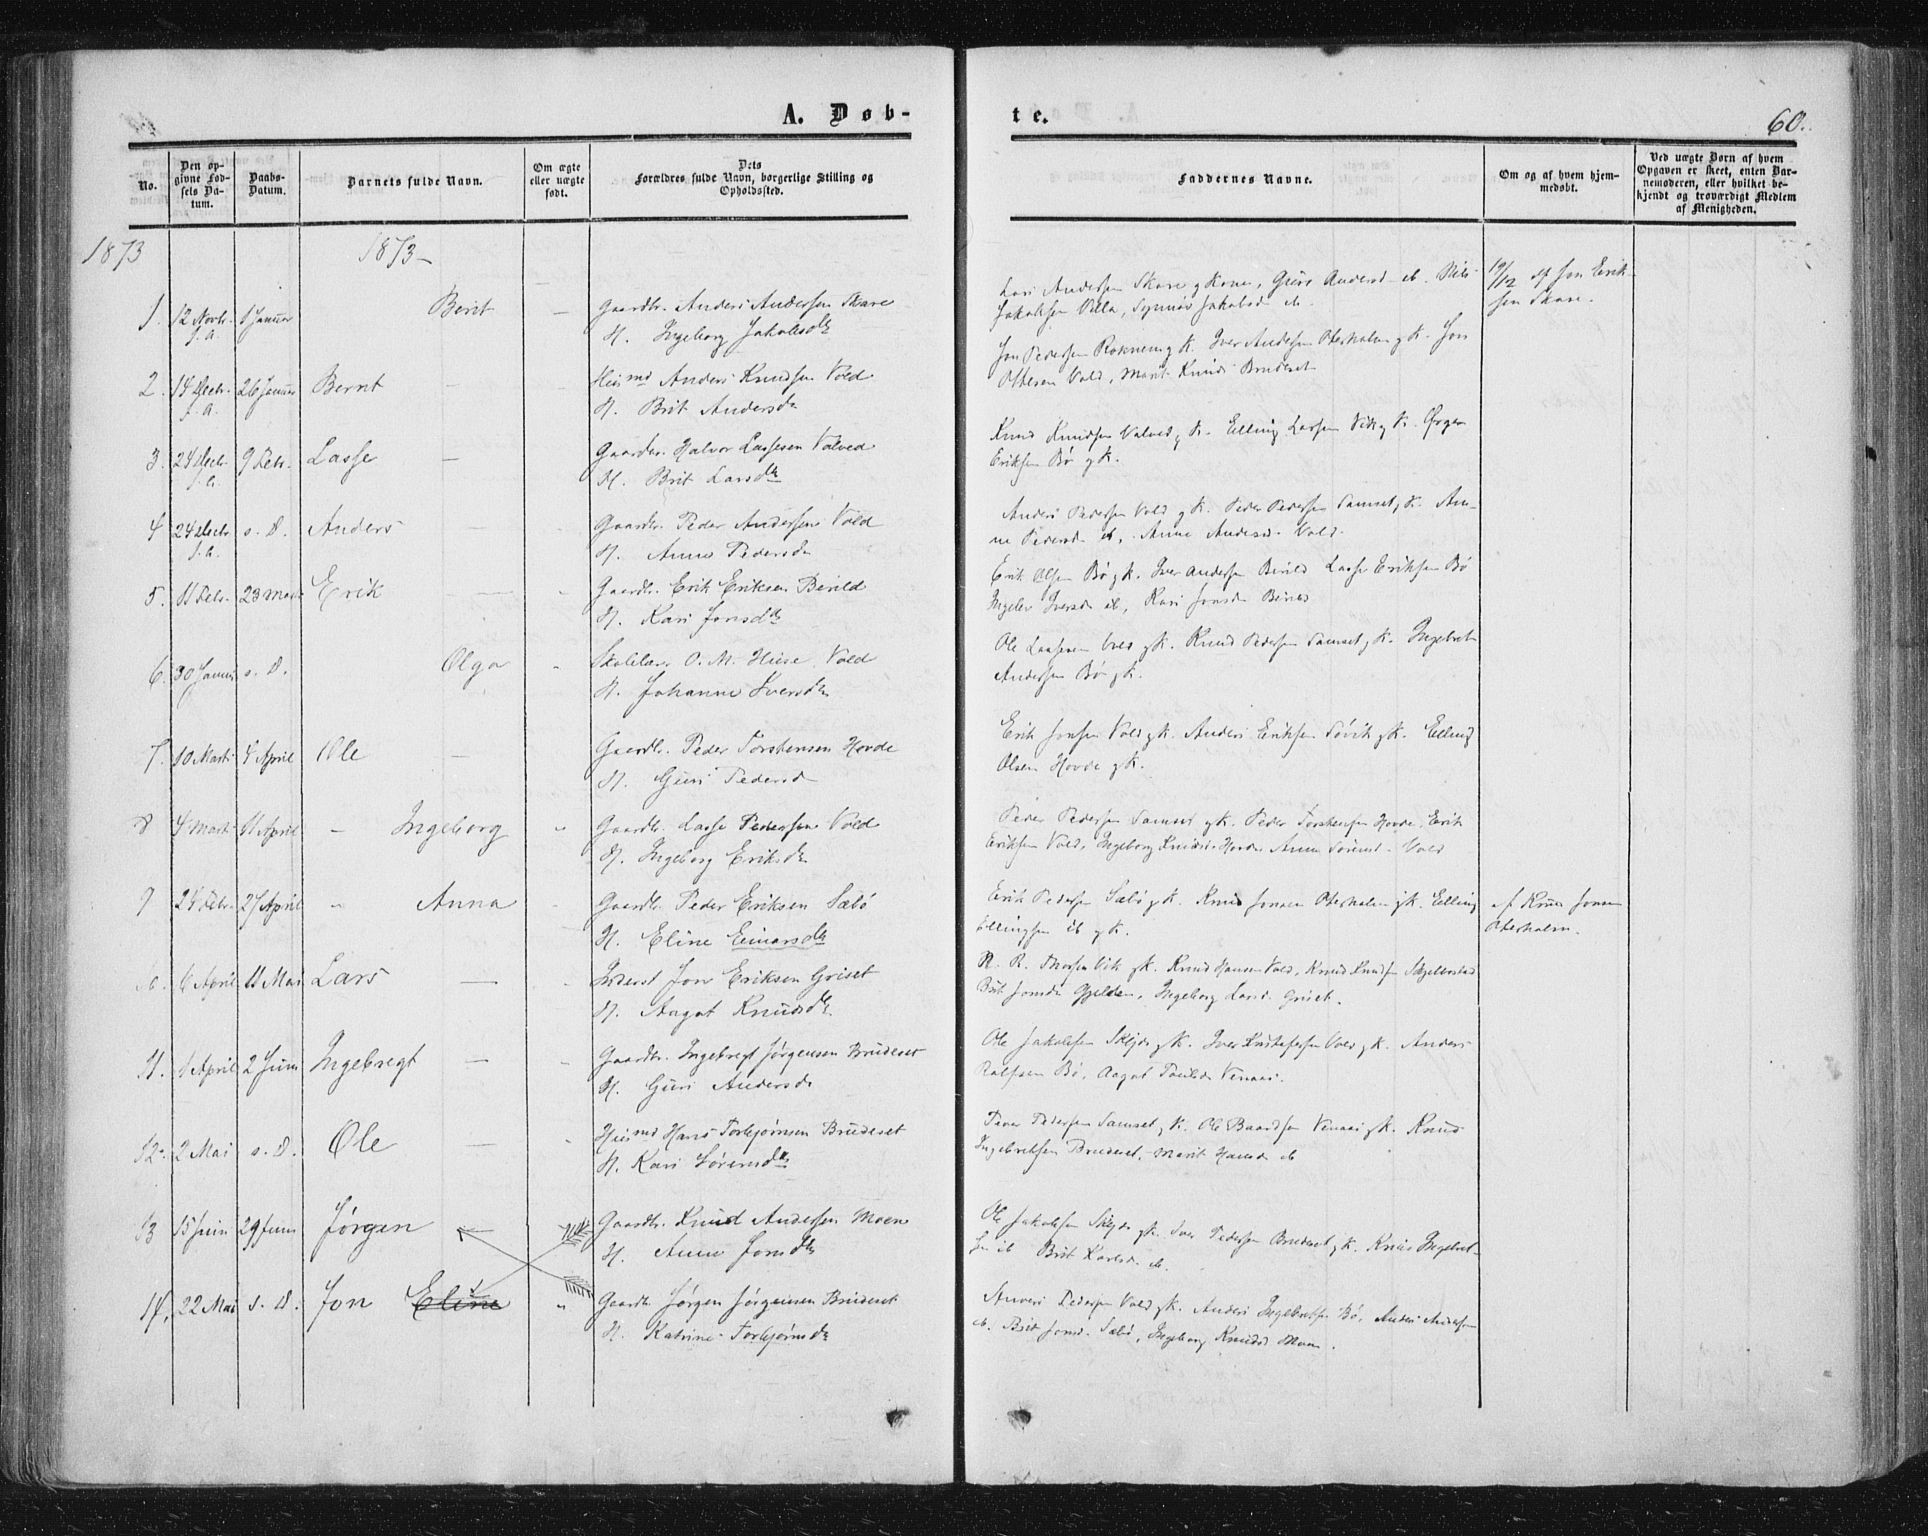 A. Døb-
te.
60.
No.
Den opgivne Fødsels Datum.
Daabs-Datum.
Barnets fulde Navn.
Om ægte eller uægte født.
Dets Forældres fulde Navn, borgerlige Stilling og Opholdssted.
Faddernes Navne.
Om og af hvem hjemmedøbt.
Ved uægte Børn af hvem Opgaven er skeet, enten Barnemoderen, eller hvilket bekjendt og troværdigt Medlem af Menigheden.
1873 1873-
1. 12 Novbr. 1 Januar Berit — Gaardbr. Anders Andersen Skare
f. A. H. Ingeborg Jakobsdr
Lars Andersen Skare g Kone, Guri Andersd ib. Nils
Jakobsen Villa, Synnøv Jakobsd ib.
19/12 af Jon Erik-
sen Skare.
2. 14 Decbr. 26 Januar Bernt — Husmd Anders Knudsen Vold
f. A. H. Brit Andersdr
Jon Pedersen Roknem g K. Iver Andersen Oterholm g K. Jon
Ottesen Vold, Marit Knuds Bruderset
3. 24 Decbr. 9 Febr. Lasse — Gaardbr. Halvor Lassesen Valved
f. A. H. Brit Larsdr
Knud Knudsen Valved g K. Elling Larsen Vik g K. Ørger
Eriksen Bø g K.
4 24 Decbr. s. D. Anders — Gaardbr. Peder Andersen Vold
f. A. H. Anne Pedersdr
Anders Pedersen Vold g K. Peder Pedersen Samset g K. An-
ne Pedersd ib, Anne Andersd. Vold.
5. 11 Febr. 23 Marts Erik — Gaardbr. Erik Eriksen Berild
H. Kari Jonsdr
Erik Olsen Bø g K. Iver Andersen Berild Lasse Eriksen Bø
Ingebor Iversd ib, Kari Jonsd Berild
6. 30 Januar s. D. Olga Skolelær. O. M. Huse Vold
H. Johanne Iversdr
Ole Lassesen Vold g K. Knud Pedersen Samset g K. Ingebret
Andersen Bø g K.
7. 10 Marts 4 April Ole — Gaardbr. Peder Torstensen Hovde
H. Guri Pedersdr
Erik Jonsen Vold g K. Anders Eriksen Søvik g K. Elling
Olsen Hovde g K.
8 4 Marts 11 April — Ingeborg Gaardbr. Lasse Pedersen Vold
H. Ingeborg Eriksdr
Peder Pedersen Samset g K. Peder Torstensen Hovde. Erik
Eriksen Vold, Ingeborg Knudsd. Hovde Anne Sørensd. Vold
9 24 Febr. 27 April Anna Gaardbr. Peder Eriksen Sæbø
H. Eline Einarsdr
Erik Pedersen Sæbø g K. Knud Jonsen Oterholm g K. Elling
Ellingsen ib g K.
af Knud Jonsen
Oterholm.
10. 6 April 11 Mai Lars — Inderst Jon Eriksen Griset
H. Aagot Knudsdr
R. R. Thorsen Vik g K. Knud Hansen Vold, Knud Knudsen Skjelbostad
Brit Jonsd Gjelden, Ingeborg Larsd. Griset.
11. 1 April 2 Juni Ingebregt — Gaardbr. Ingebregt Jørgensen Bruderset
H. Guri Andersdr
Ole Jakobsen Skeide g K. Iver Kristofersen Vold g K. Anders
Rolfsen Bø, Aagot Paulsd Venaas.
12. 2 Mai s. D. Ole — Husmd Hans Torbjørnsen Bruderset
H. Kari Sørensdr
Peder Pedersen Samset g K. Ole Baardsen Venaas g K. Knud
Ingebretsen Bruderset. Marit Hansd ib
13 15 Juni 29 Juni Jørgen — Gaardbr. Knud Andersen Moen
H. Anne Jonsdr
Ole Jakobsen Skeide g K. Iver Pedersen Bruderset g K. Knud Ingebret-
sen ib Brit Karlsd. ib.
14. 22 Mai s. D. Jon Eline Gaardb. Jørgen Jørgensen Bruderset
H. Katrine Torbjørnsdr
Anders Pedersen Vold g K. Anders Ingebretsen Bø, Anders Andersen
ib. Brit Jonsd. Sæbø, Ingeborg Knudsd Moen.